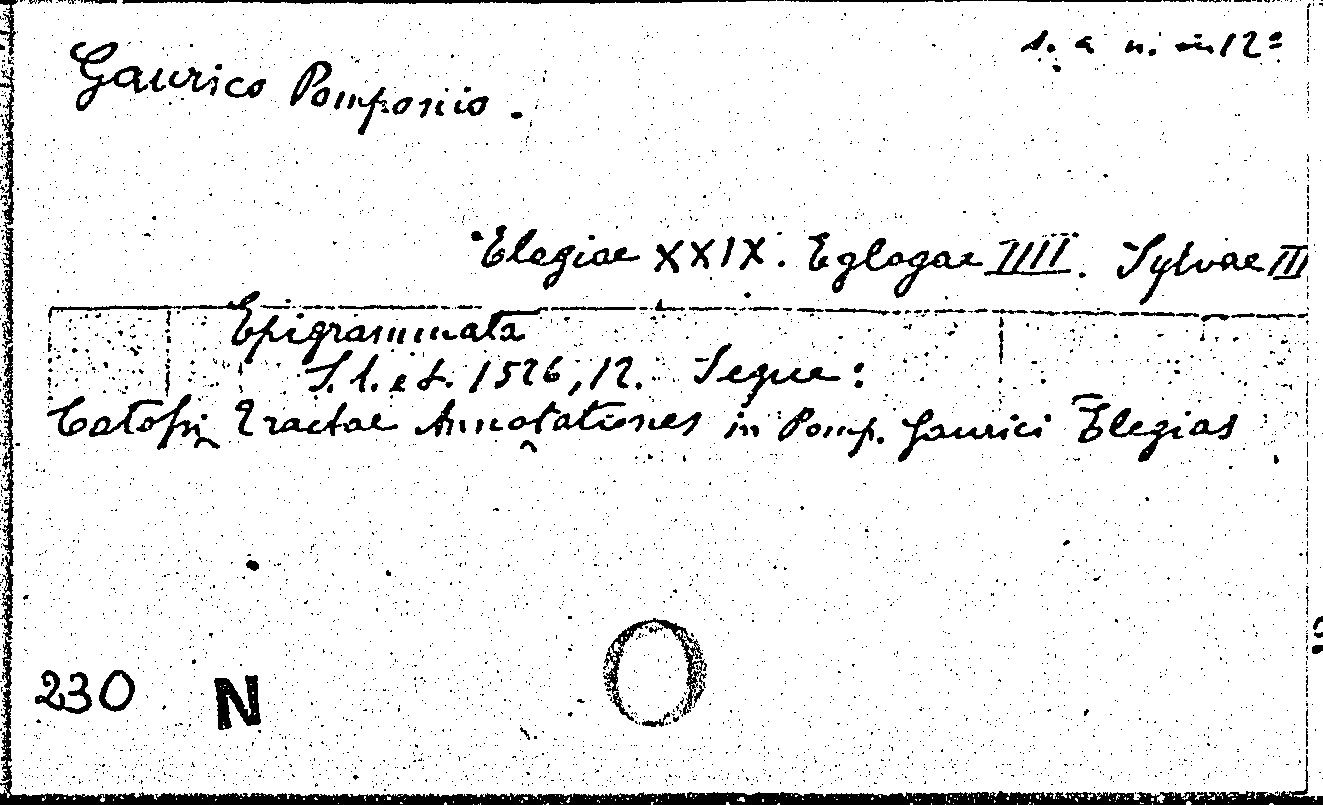 s. a n. in 12º
Gaurico Pomponio.
Elegiae XXIX. Eglogae IIII. Sylvae III
Epigrammata
S. l. et. 1526, 12. Segue:
Catosi Tractae Annotationes in Pomp. Gaurici Elegias
230 N